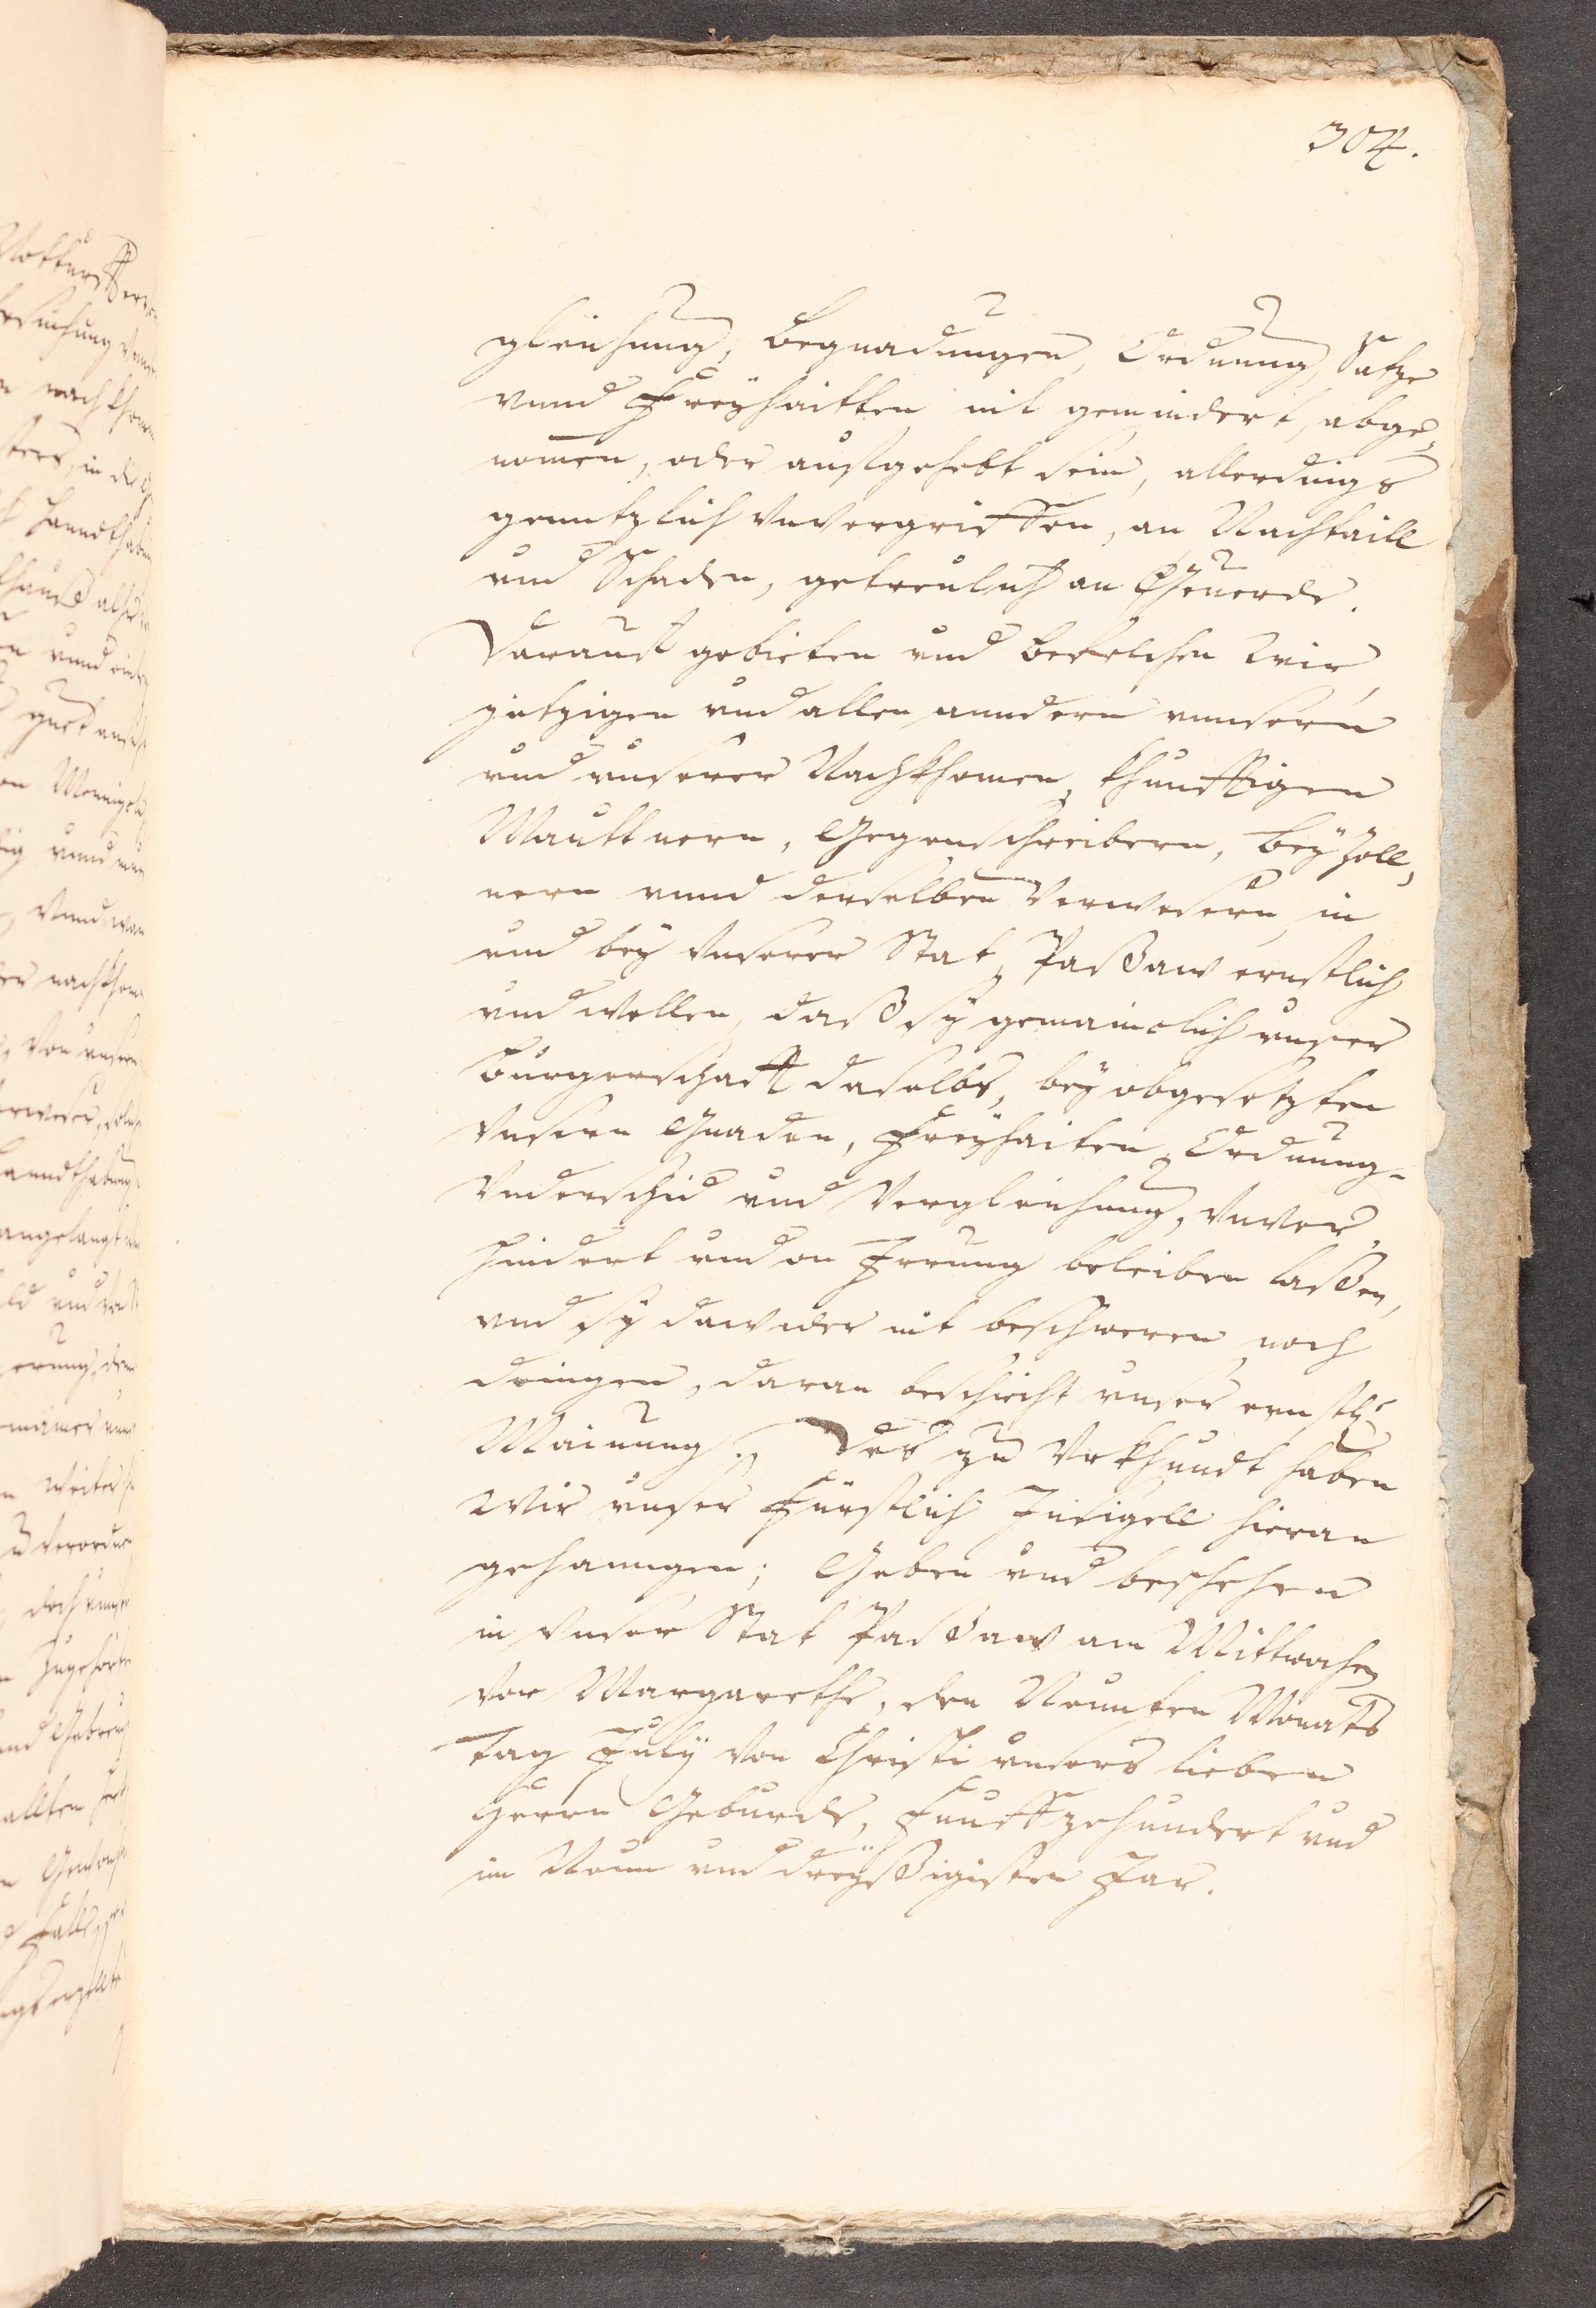 304.
gleichung, Begnadungen, Ordnung, Satze
vnnd Freÿhaitten nit gemindert, abge,
nomen, oder aufgehebt sein, allerdings
genntzlich vnvergriffen, an Nachtaill
vnd Schaden, getreulich an Gfeuerde.
Darauf gebieten vnd bevelchen wir
yetzigen vnd allen anndern vnnsern
vnd vnserer Nachkhomen, khunfftigen
Mauttnern, Gegenschreibern, Beÿzoll,
nern vnnd derselben Verwesern in
vnd beÿ vnserer Stat Paßaw ernstlich
vnd wellen, daß sÿ gemainclich vnser
Burgerschafft daselbs, beÿ obgesetzten
vnsern Gnaden, Freÿhaiten, Ordnung-
vnderschid vnd Vergleichung, vnver,
hindert vnd on Irrung beleiben laßen,
vnd sÿ dawider nit beschweren noch
dringen, daran beschicht vnser ernstl:
Mainung. Des zu Vrkhundt haben
wir vnser Fürstlich Insigell hieran
gehanngen; Geben vnd beschehen
in vnser Stat Paßaw am Mittwochen
vor Margarethe, den Neunten Monats
tag Julÿ von Christi vnsers lieben
Herrn Geburde, Funffzehundert vnd
im Neun vnd dreÿßigisten Jar.